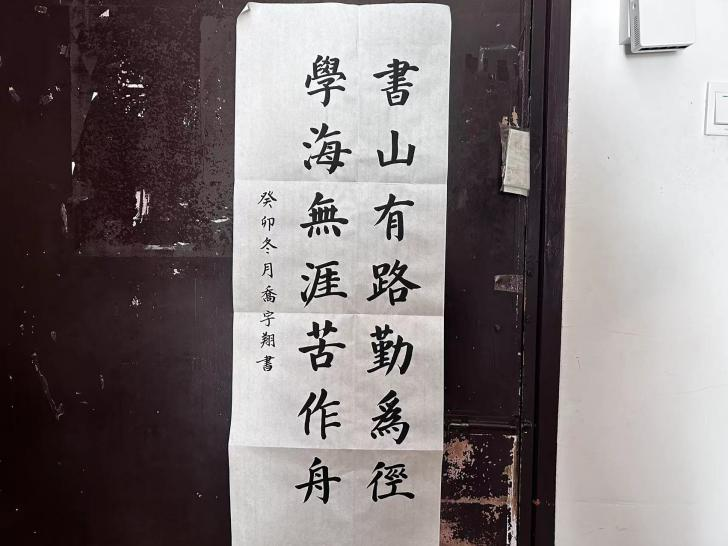 書山有路勤為徑
學海無涯苦作舟
癸卯冬月喬宇翔書